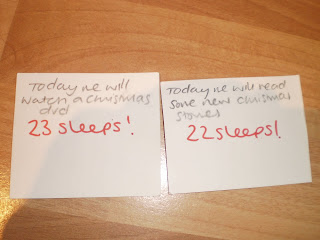 Today we will
watch a christmas
dvd
23 sleeps!
Today we will read
some new christmas
stories
22 sleeps!